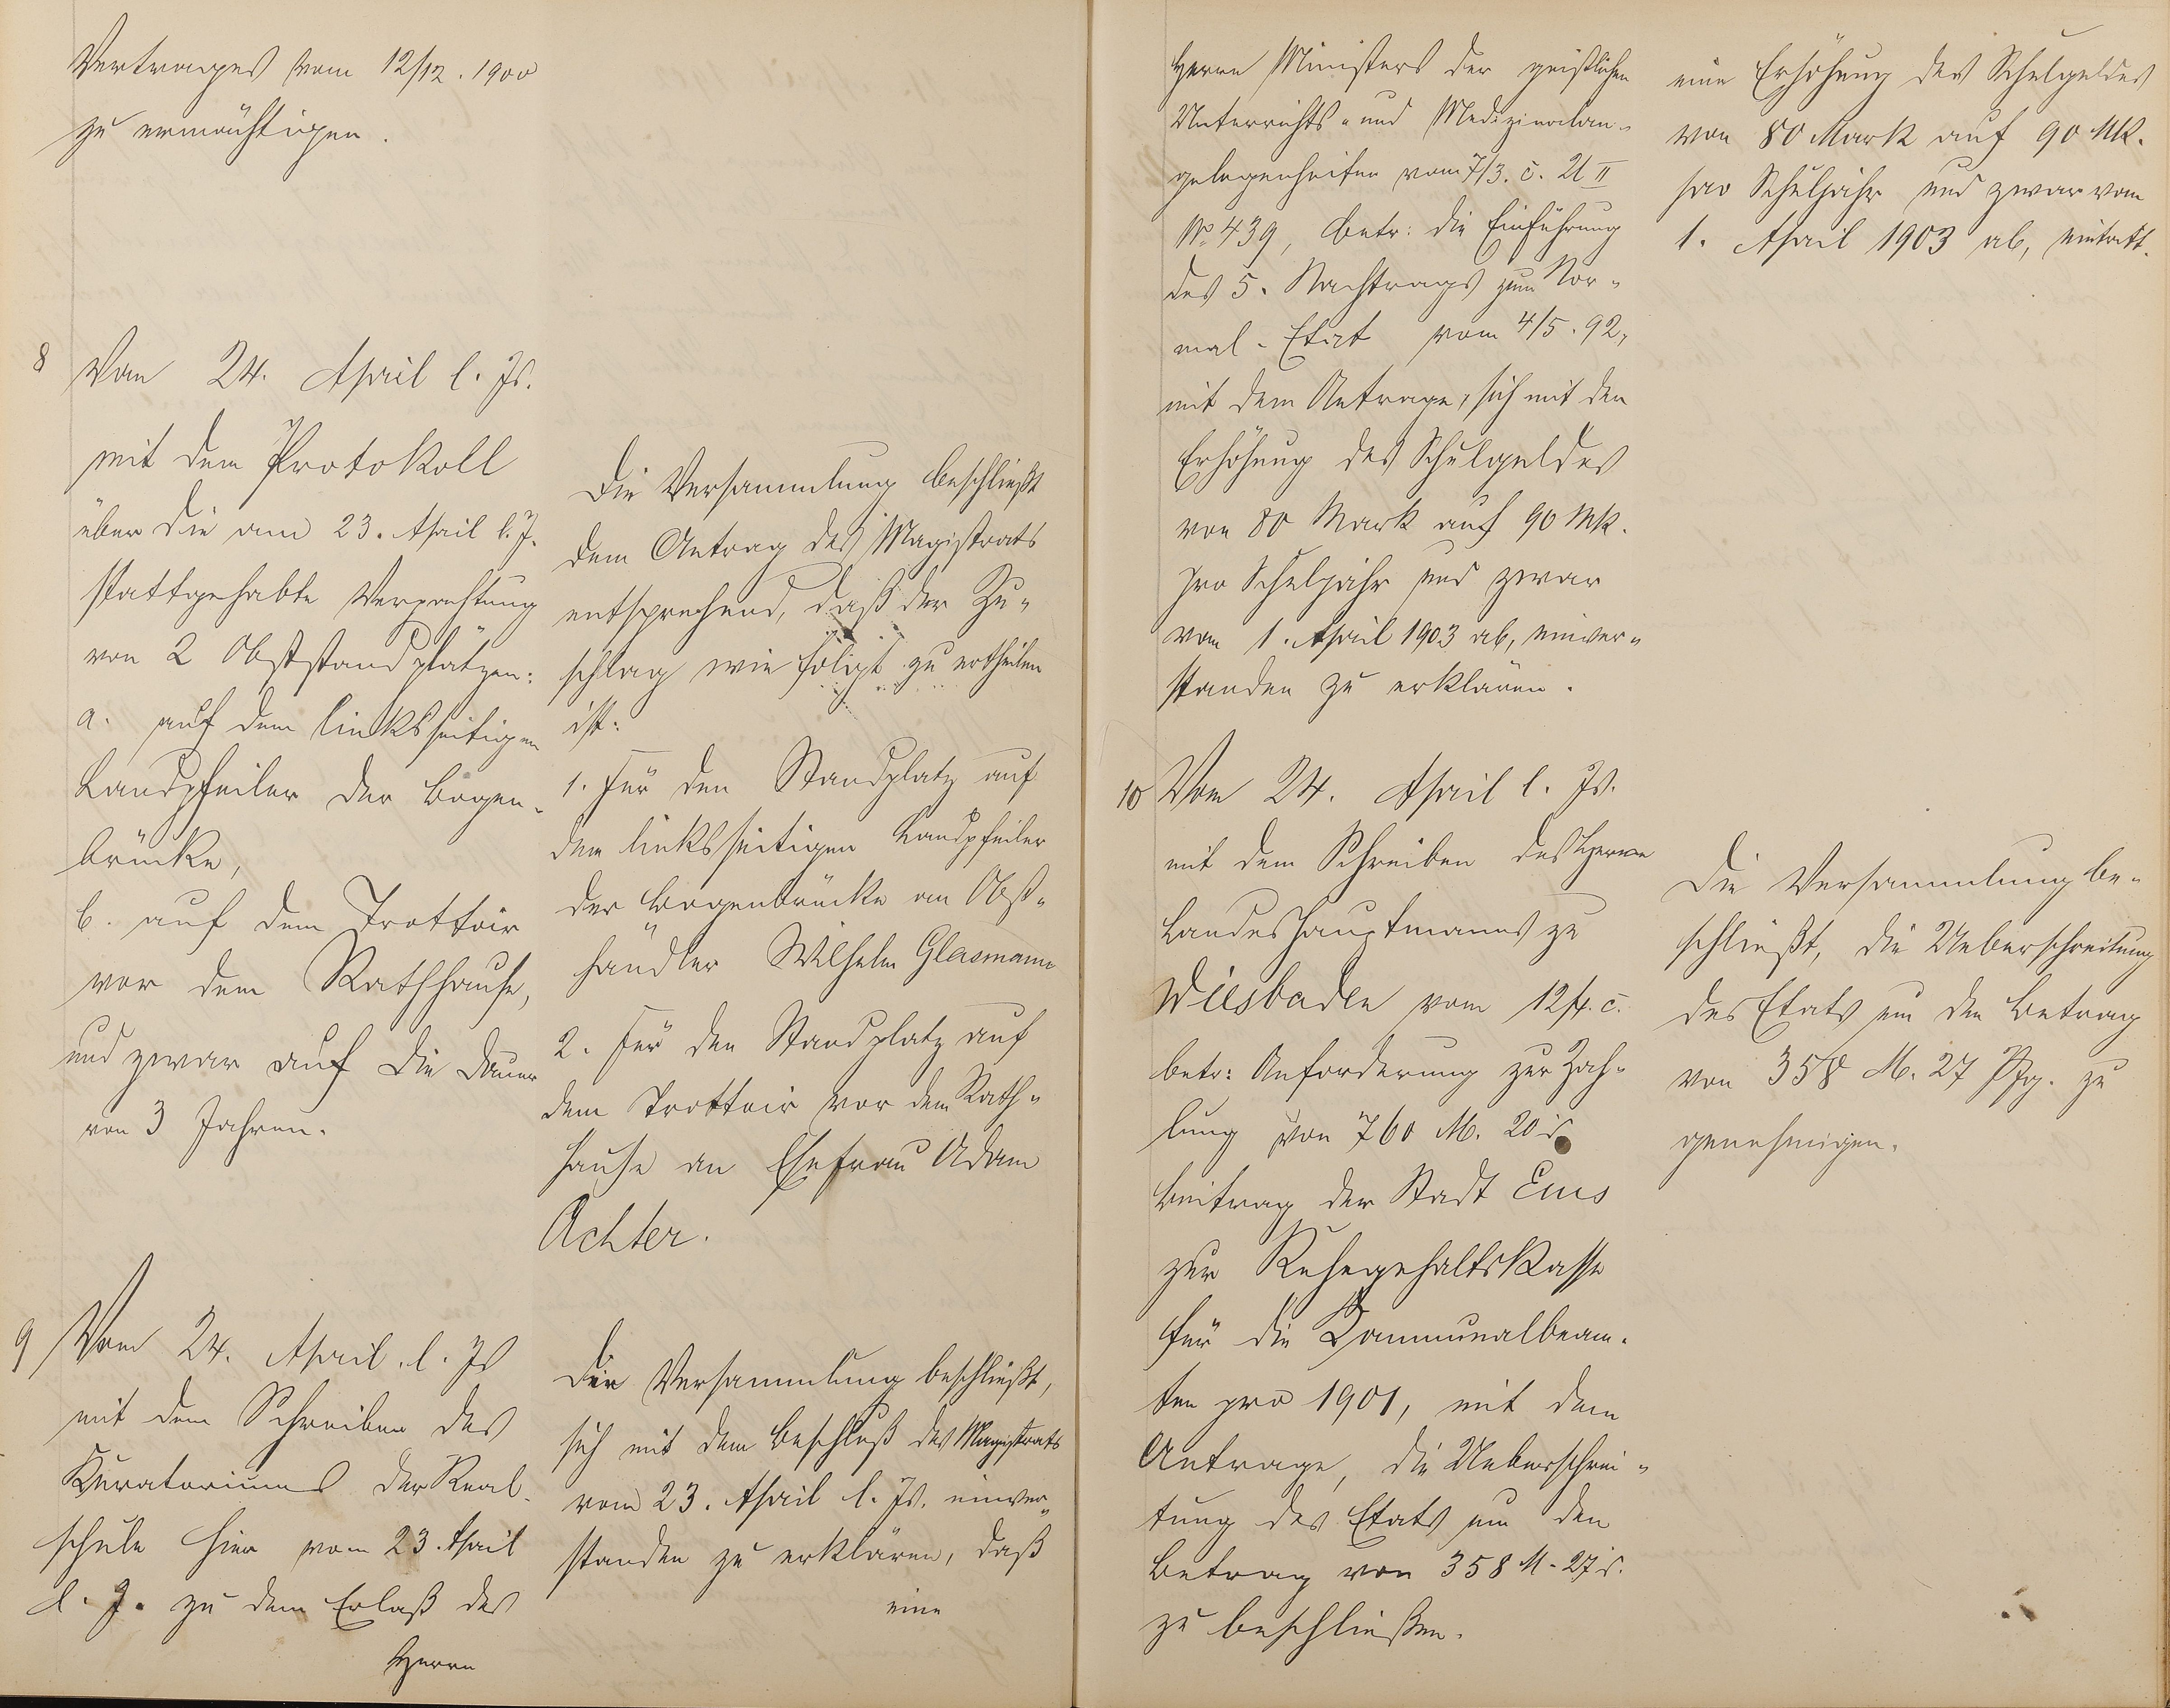 Vertrages vom 12/12. 1900
zu ermächtigen.
8 Vom 24. April l. Js.
mit dem Protokoll
über die am 23. April l. J.
stattgehabte Verpachtung
von 2 Obststandplätzen:
a. auf dem linksseitigen
Landpfeiler der Bogen-
brücke,
b. auf dem Trottoir
vor dem Rathhause,
und zwar auf die Dauer
von 3 Jahren.
Die Versammlung beschließt
dem Antrag des Magistrats
entsprechend, daß der Zu-
schlag wie folgt zu ertheilen
ist:
1. Für den Standplatz auf
dem linksseitigen Landpfeiler
der Bogenbrücke an Obst-
händler Wilhelm Glasmann
2. Für den Standplatz auf
dem Trottoir vor dem Rath-
hause an Ehefrau Adam
Achter.
9 Vom 24. April l. Js
mit dem Schreiben des
Kuratoriums der Real-
schule hier vom 23. April
l. J. zu dem Erlaß des
Herrn
Die Versammlung beschließt,
sich mit dem Beschluß des Magistrats
vom 23. April l. Js. einver-
standen zu erklären, daß
eine
Herrn Ministers der geistlichen
Unterrichts- und Medizinalan-
gelegenheiten vom 7/3. c. U II
No 439, betr: die Einführung
des 5. Nachtrags zum Nor-
mal-Etat vom 4/5. 92,
mit dem Antrage, sich mit der
Erhöhung des Schulgeldes
von 80 Mark auf 90 Mk.
pro Schuljahr und zwar
vom 1. April 1903 ab, einver-
standen zu erklären.
eine Erhöhung des Schulgeldes
von 80 Mark auf 90 Mk.
pro Schuljahr und zwar vom
1. April 1903 ab, eintritt.
10 Vom 24. April l. Js.
mit dem Schreiben des Herrn
Landeshauptmanns zu
Wiesbaden vom 12/4. c.
betr: Anforderung zur Zah-
lung von 760 M. 20
Beitrag der Stadt Ems
zur Ruhegehaltskasse
für die Kommunalbeam-
ten pro 1901, mit dem
Antrage, die Ueberschrei-
tung des Etats um den
Betrag von 358 M. 27
zu beschließen.
Die Versammlung be-
schließt, die Ueberschreitung
des Etats um den Betrag
von 358 M. 27 Pfg. zu
genehmigen.